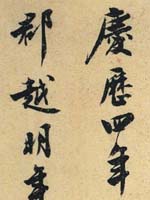 慶歷四年
郡越明年